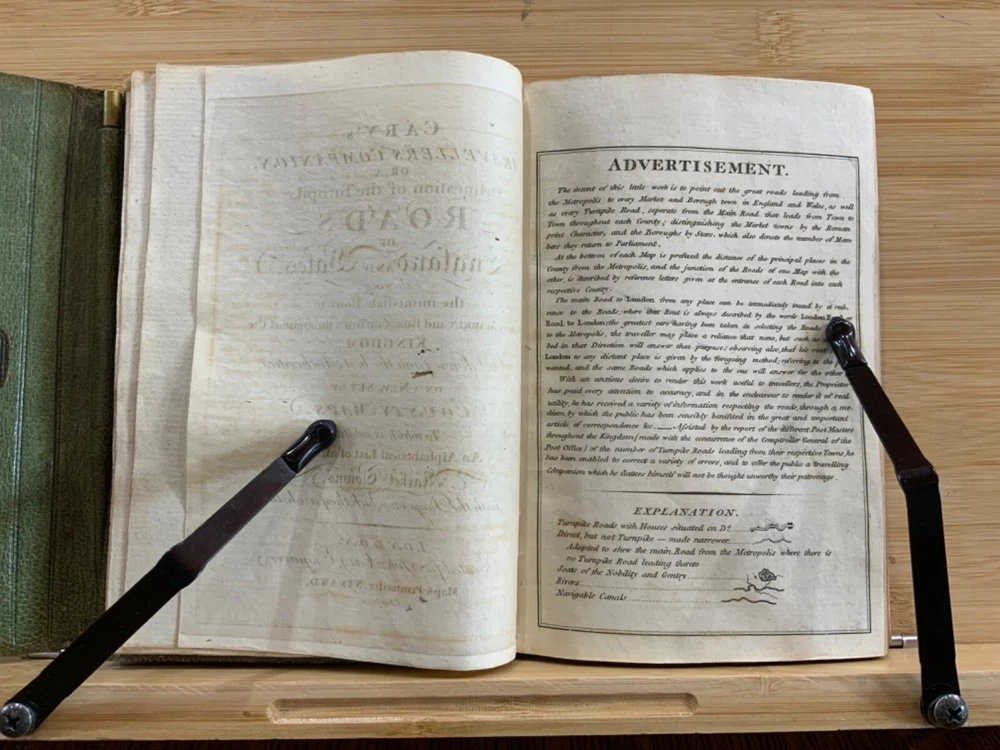 CARY's
TRAVELLER'S COMPANION,
OR, A
Delineation of the Turnpike
ROADS
OF
England AND Wales;
the immediate Rout to every
KINGDOM.
ON A NEW SET OF
COUNTY MAPS.
To which is added
An Alphabetical List of all the
Market Towns
LONDON:
ADVERTISEMENT.
The intent of this little work is to point out the great roads leading from
the Metropolis to every Market and Borough town in England and Wales, as well
as every Turnpike Road, seperate from the Main Road that leads from Town to
Town throughout each County; distinguishing the Market towns by the Roman
print Character, and the Boroughs by Stars, which also denote the number of Mem-
bers they return to Parliament.
At the bottom of each Map is prefixed the distance of the principal places in the
County from the Metropolis, and the junction of the Roads of one Map with the
other, is described by reference letters given at the entrance of each Road into each
respective County.
The main Road to London from any place can be immediately traced by a refe-
rence to the Roads; where that Rout is always described by the words London
Road to London; the greatest care having been taken in selecting the Roads
to the Metropolis, the traveller may place a reliance that none, but such as
bed in that Direction will answer that purpose: observing also, that his rout
London to any distant place is given by the foregoing method; referring to the
wanted, and the same Roads which applies to the one will answer for the other.
With an anxious desire to render this work useful to travellers, the Proprietor
has paid every attention to accuracy, and in the endeavour to render it of real
utility, he has received a variety of information respecting the roads, through a me-
dium, by which the public has been sensibly benifited in the great and important
article of correspondence &c. — Assisted by the report of the different Post Masters
throughout the Kingdom (made with the concurrence of the Comptroller General of the
Post Office) of the number of Turnpike Roads leading from their respective Towns, he
has been enabled to correct a variety of errors, and to offer the public a travelling
Companion which he flatters himself will not be thought unworthy their patronage.
EXPLANATION.
Turnpike Roads with Houses situated on Do.
Direct, but not Turnpike — made narrower
Adapted to shew the main Road from the Metropolis where there is
no Turnpike Road leading thereto
Seats of the Nobility and Gentry
Rivers
Navigable Canals